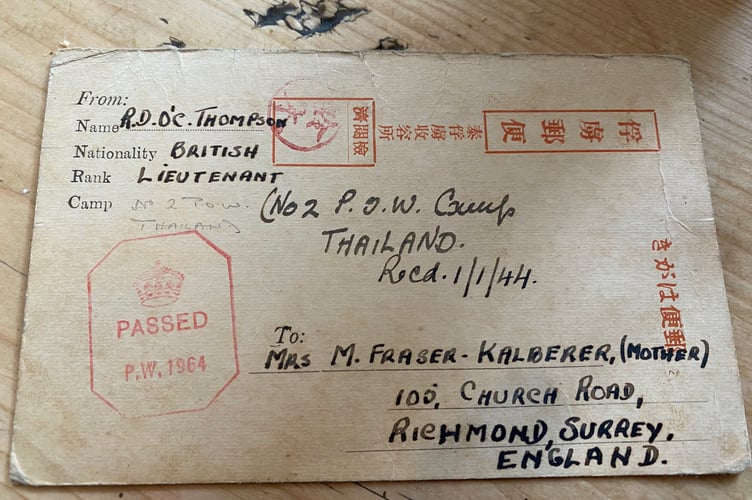 From:
Name R.D.O'C. THOMPSON
Nationality BRITISH
Rank LIEUTENANT
Camp No 2 P.O.W.
THAILAND
(No 2 P.O.W. Camp
THAILAND.
Recd. 1/1/44.
檢閲濟
泰俘虜收容所
俘虜郵便
郵便はがき
PASSED
P.W. 1964
To:
MRS M. FRASER-KALBERER, (MOTHER)
100, CHURCH ROAD,
RICHMOND, SURREY.
ENGLAND.